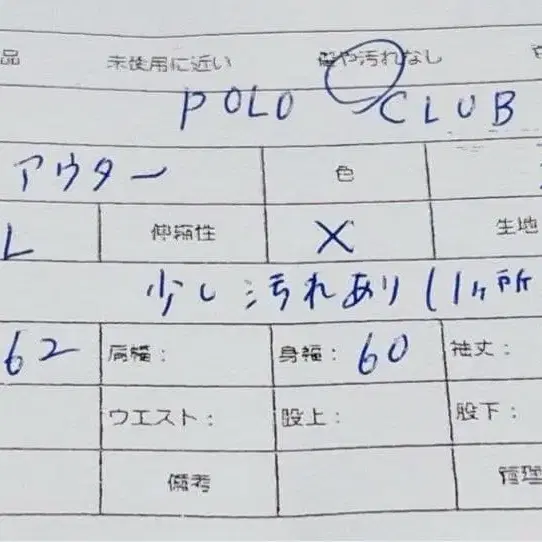 品 未使用に近い 傷や汚れなし
POLO CLUB
アウター 色
L 伸縮性 X 生地
少し汚れあり (1ヶ所
62 肩幅: 身幅: 60 袖丈:
ウエスト: 股上: 股下:
備考 管理